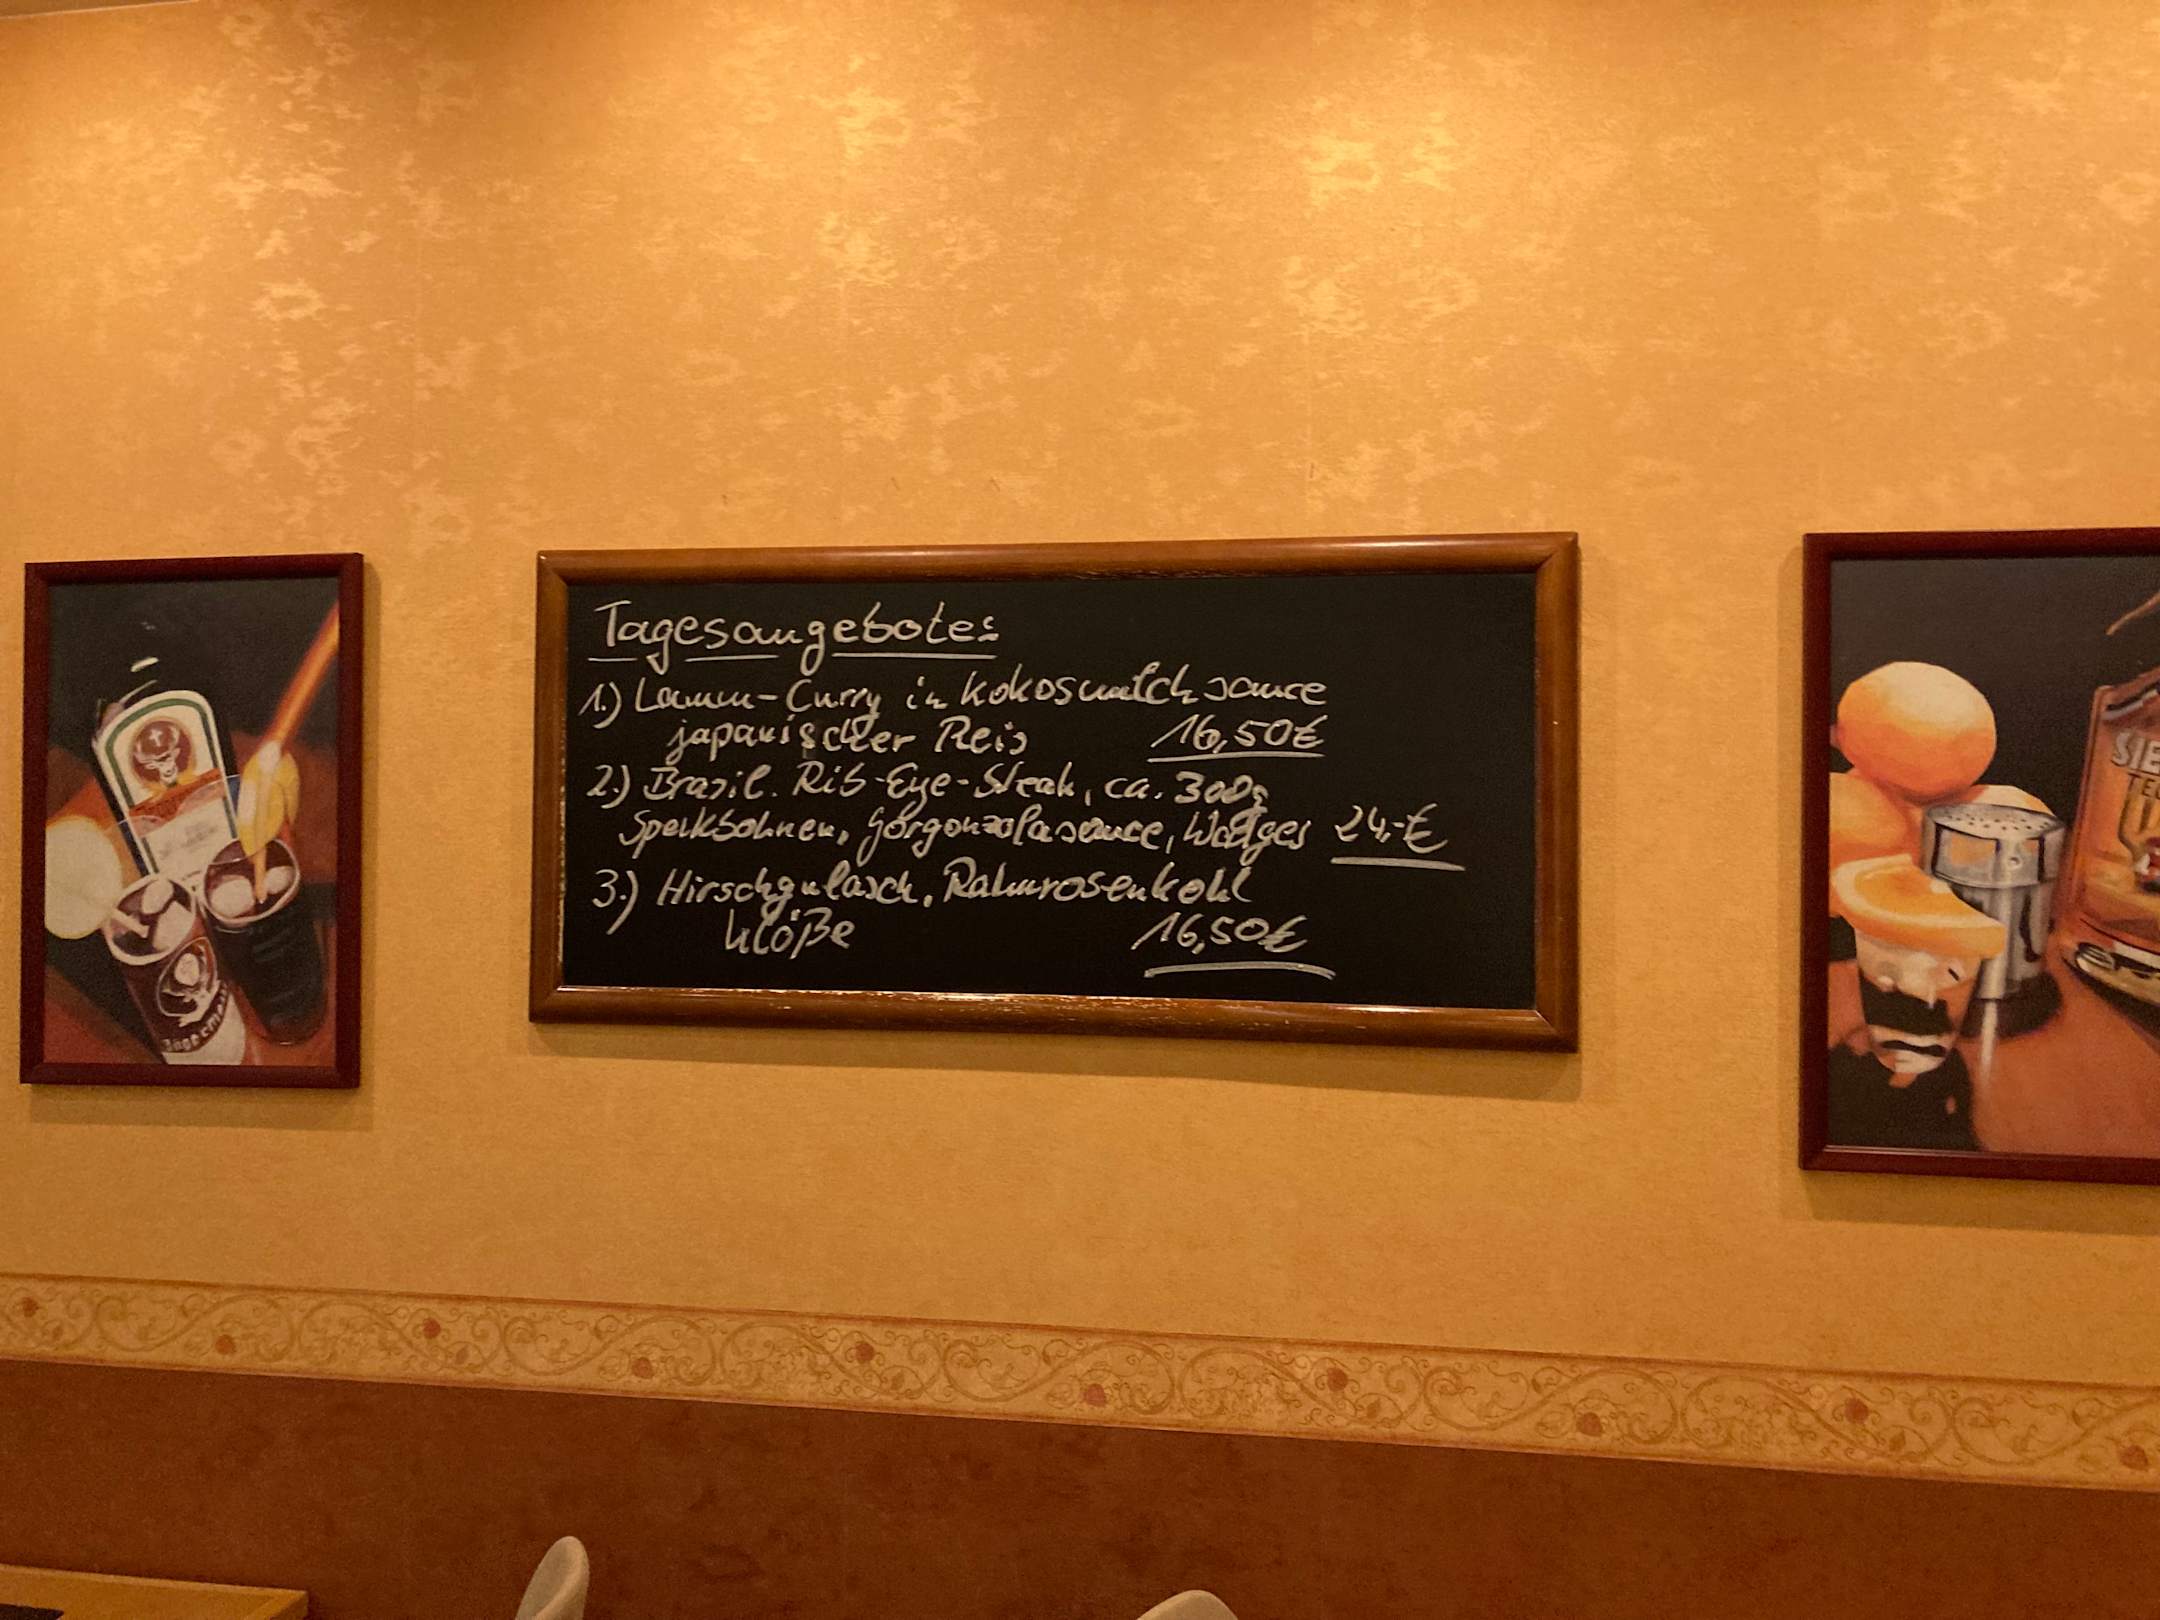 Tagesangebote:
1.) Lamm-Curry in Kokosmilchsauce
japanischer Reis 16,50€
2.) Brasil. Rib-Eye-Steak, ca. 300g
Speckbohnen, Gorgonzolasauce, Wedges 24,-€
3.) Hirschgulasch, Rahmrosenkohl
Klöße 16,50€
Jägerme
SIE
TE